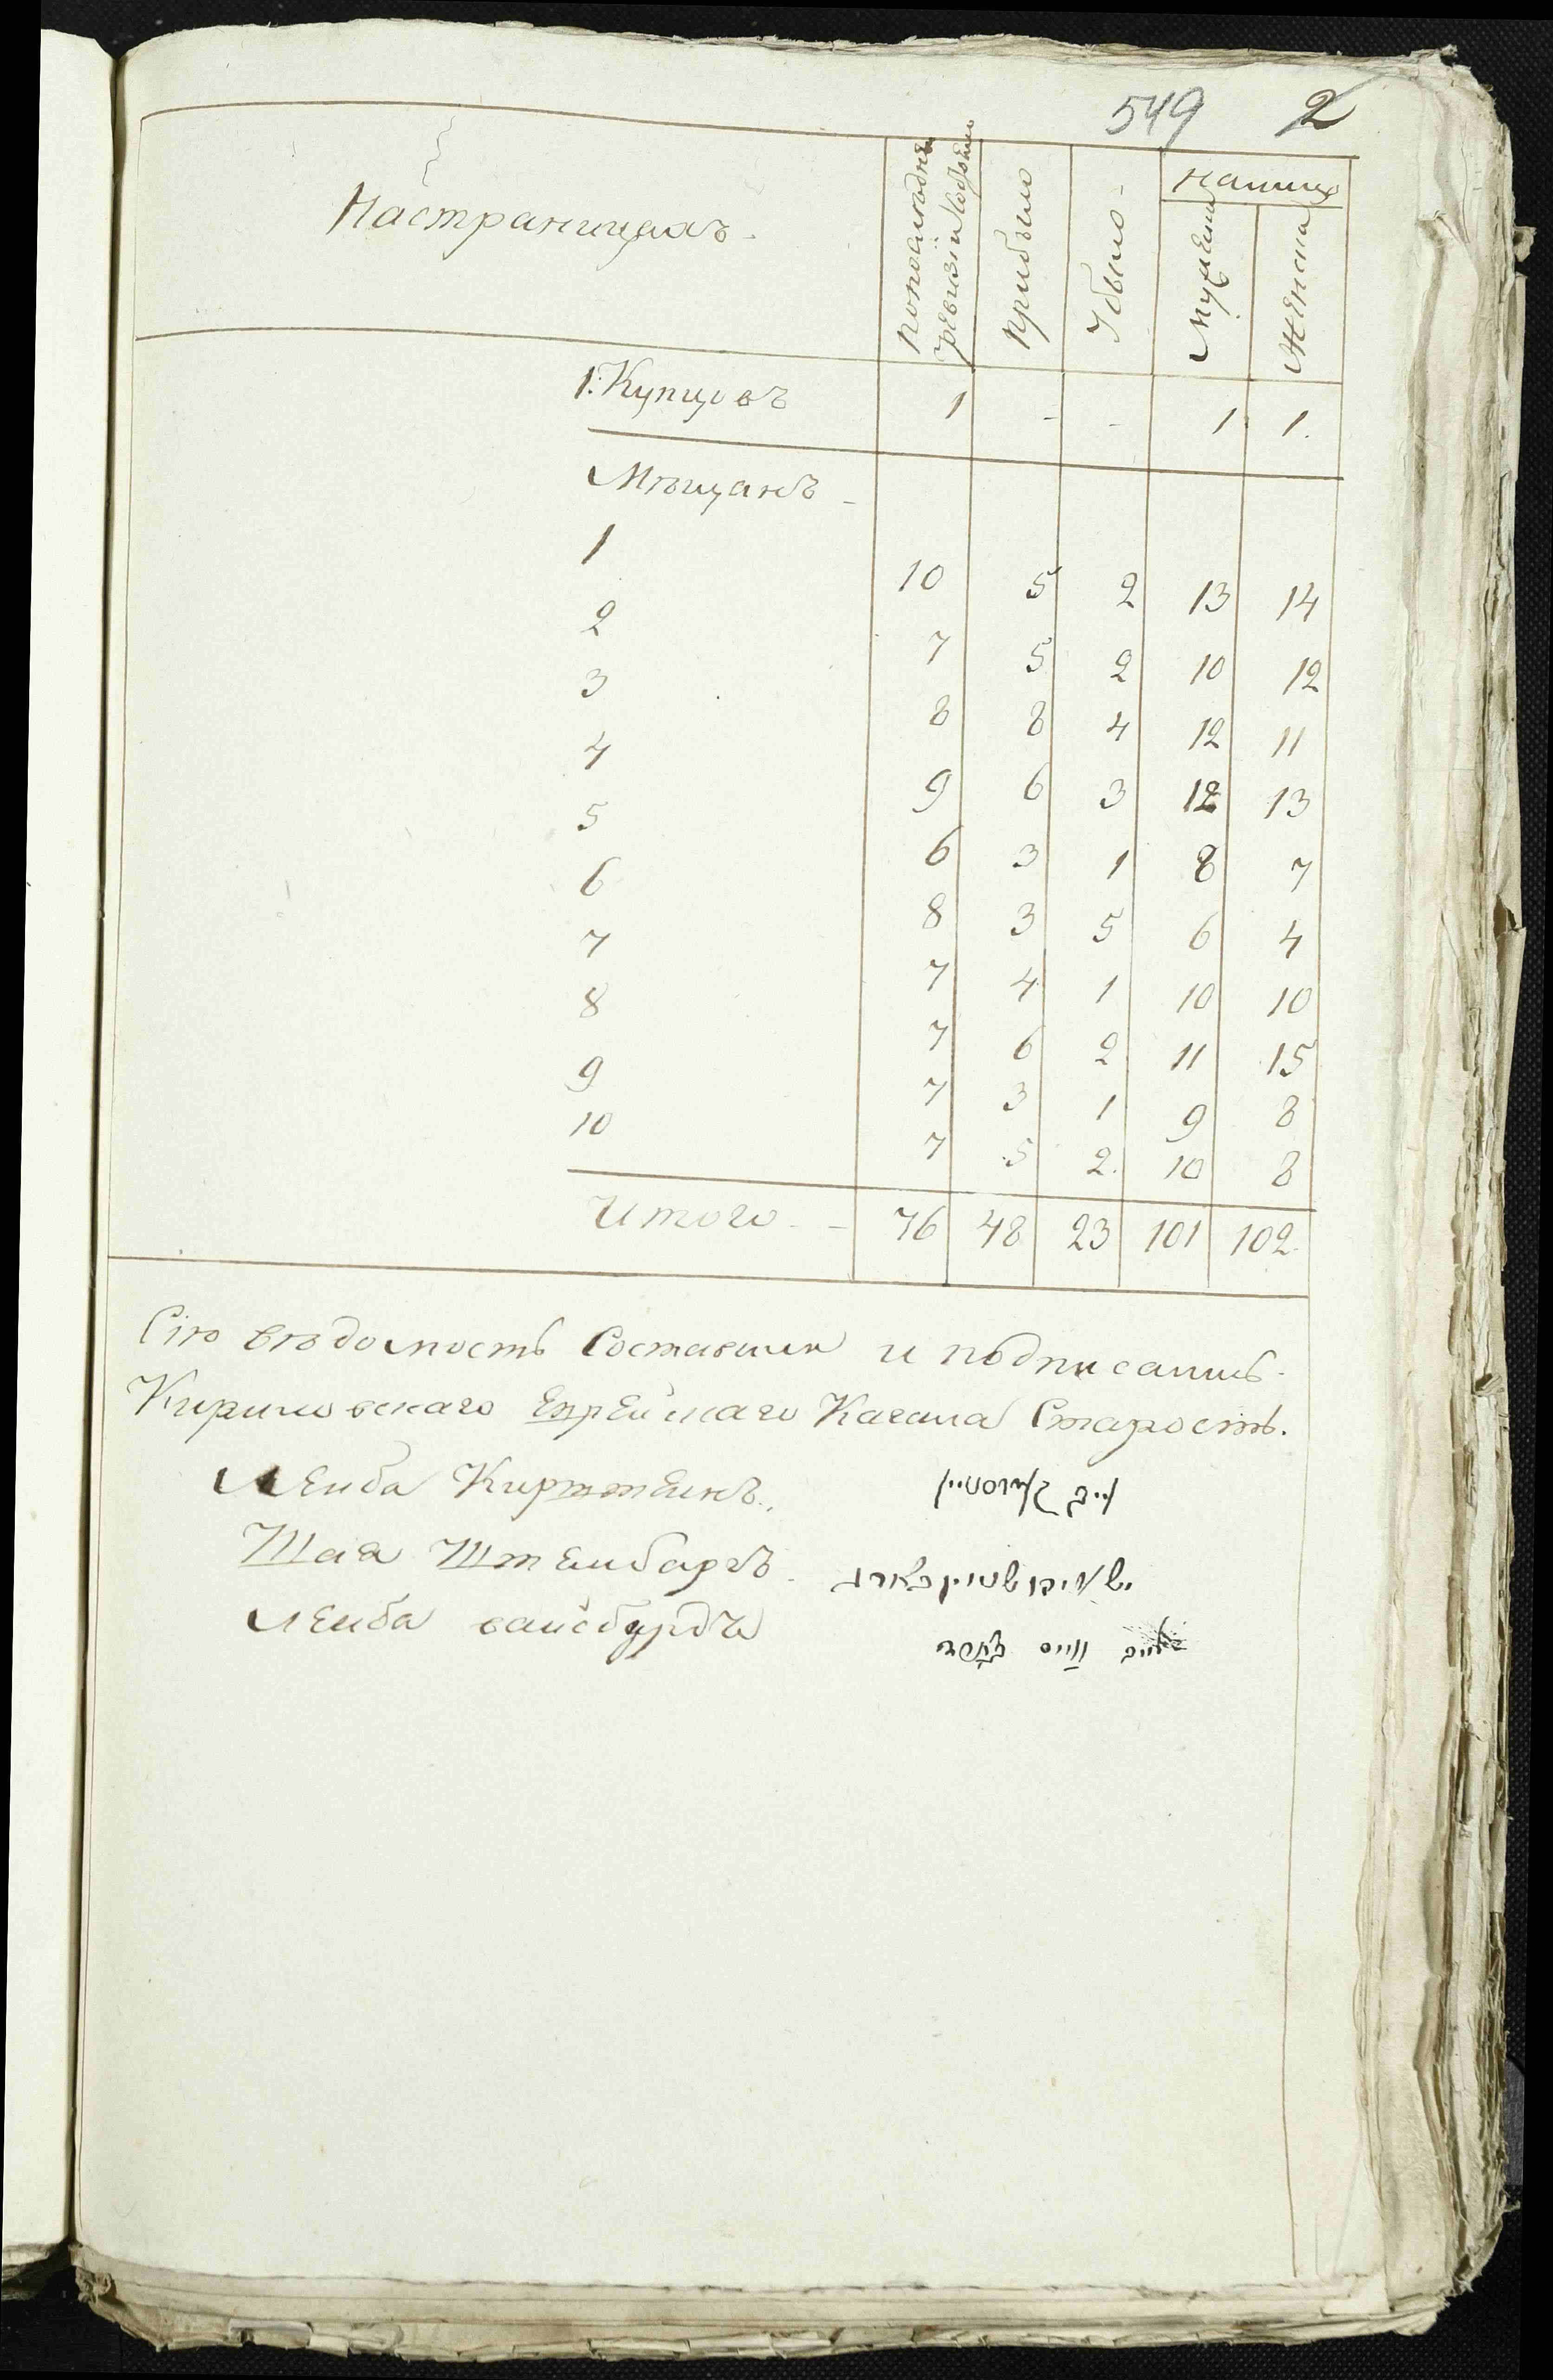 549 2
Настраницахъ
попослѣдней ревизіи состояло
прибыло
Убыло
налицо
Мужеска
Женска
1. Купцовъ 1 - - 1 1.
Мѣщанъ -
1 10 5 2 13 14
2 7 5 2 10 12
3 8 8 4 12 11
4 9 6 3 12 13
5 6 3 1 8 7
6 8 3 5 6 4
7 7 4 1 10 10
8 7 6 2 11 15
9 7 3 1 9 8
10 7 5 2. 10 8
Итого - - 76 48 23 101 102.
Сію вѣдомость Составили и подписались.
Кириловскаго Еврейскаго Кагала Старосты.
Леиба Кирштеинъ
Шая Штеинбаргъ
Леиба ваисбурдъ